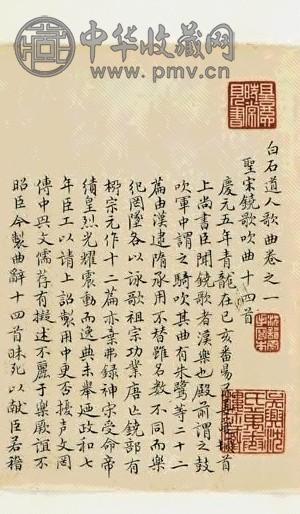 中华收藏网
www.pmv.cn
白石道人歌曲卷之一
聖宋鐃歌吹曲十四首
慶元五年青龍在己亥番易民姜夔頓首
上尚書臣聞鐃歌者漢樂也殿前謂之鼓
吹軍中謂之騎吹其曲有朱鷺等二十二
篇由漢逮隋承用不替雖名數不同而樂
紀罔墜各以詠歌祖宗功業唐亡鐃部有
栁宗元作十二篇亦棄弗録神宋受命帝
績皇烈光耀震動而逸典未舉廼政和七
年臣工以請上詔製用中更否擾声文罔
傳中興文儒荐有擬述不麗于樂厥誼不
昭臣今製曲辭十四首昧死以獻臣若稽